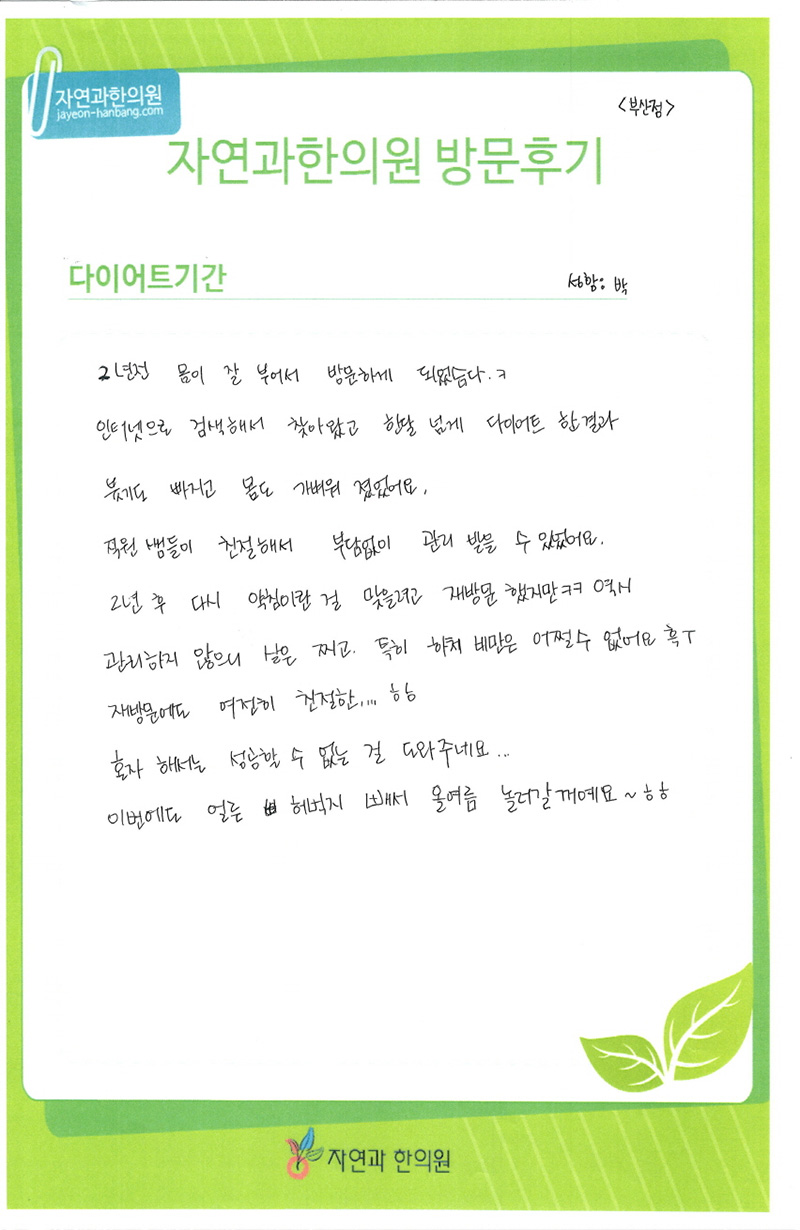 자연과한의원
jayeon-hanbang.com
<부산점>
자연과한의원 방문후기
다이어트기간
성함: 박
2년전 몸이 잘 부어서 방문하게 되었습다.ㅋ
인터넷으로 검색해서 찾아왔고 한달 넘게 다이어트 한결과
붓기도 빠지고 몸도 가벼워 졌었어요.
직원 쌤들이 친절해서 부담없이 관리 받을 수 있었어요.
2년 후 다시 약침이란 걸 맞을려고 재방문 했지만ㅋㅋ 역시
관리하지 않으니 살은 찌고. 특히 하체 비만은 어쩔수 없어요 흑ㅜ
재방문에도 여전히 친절한.... ㅎㅎ
혼자 해서는 성공할 수 없는 걸 도와주네요...
이번에도 얼른 허벅지 빼서 올여름 놀러갈꺼예요~ㅎㅎ
자연과 한의원